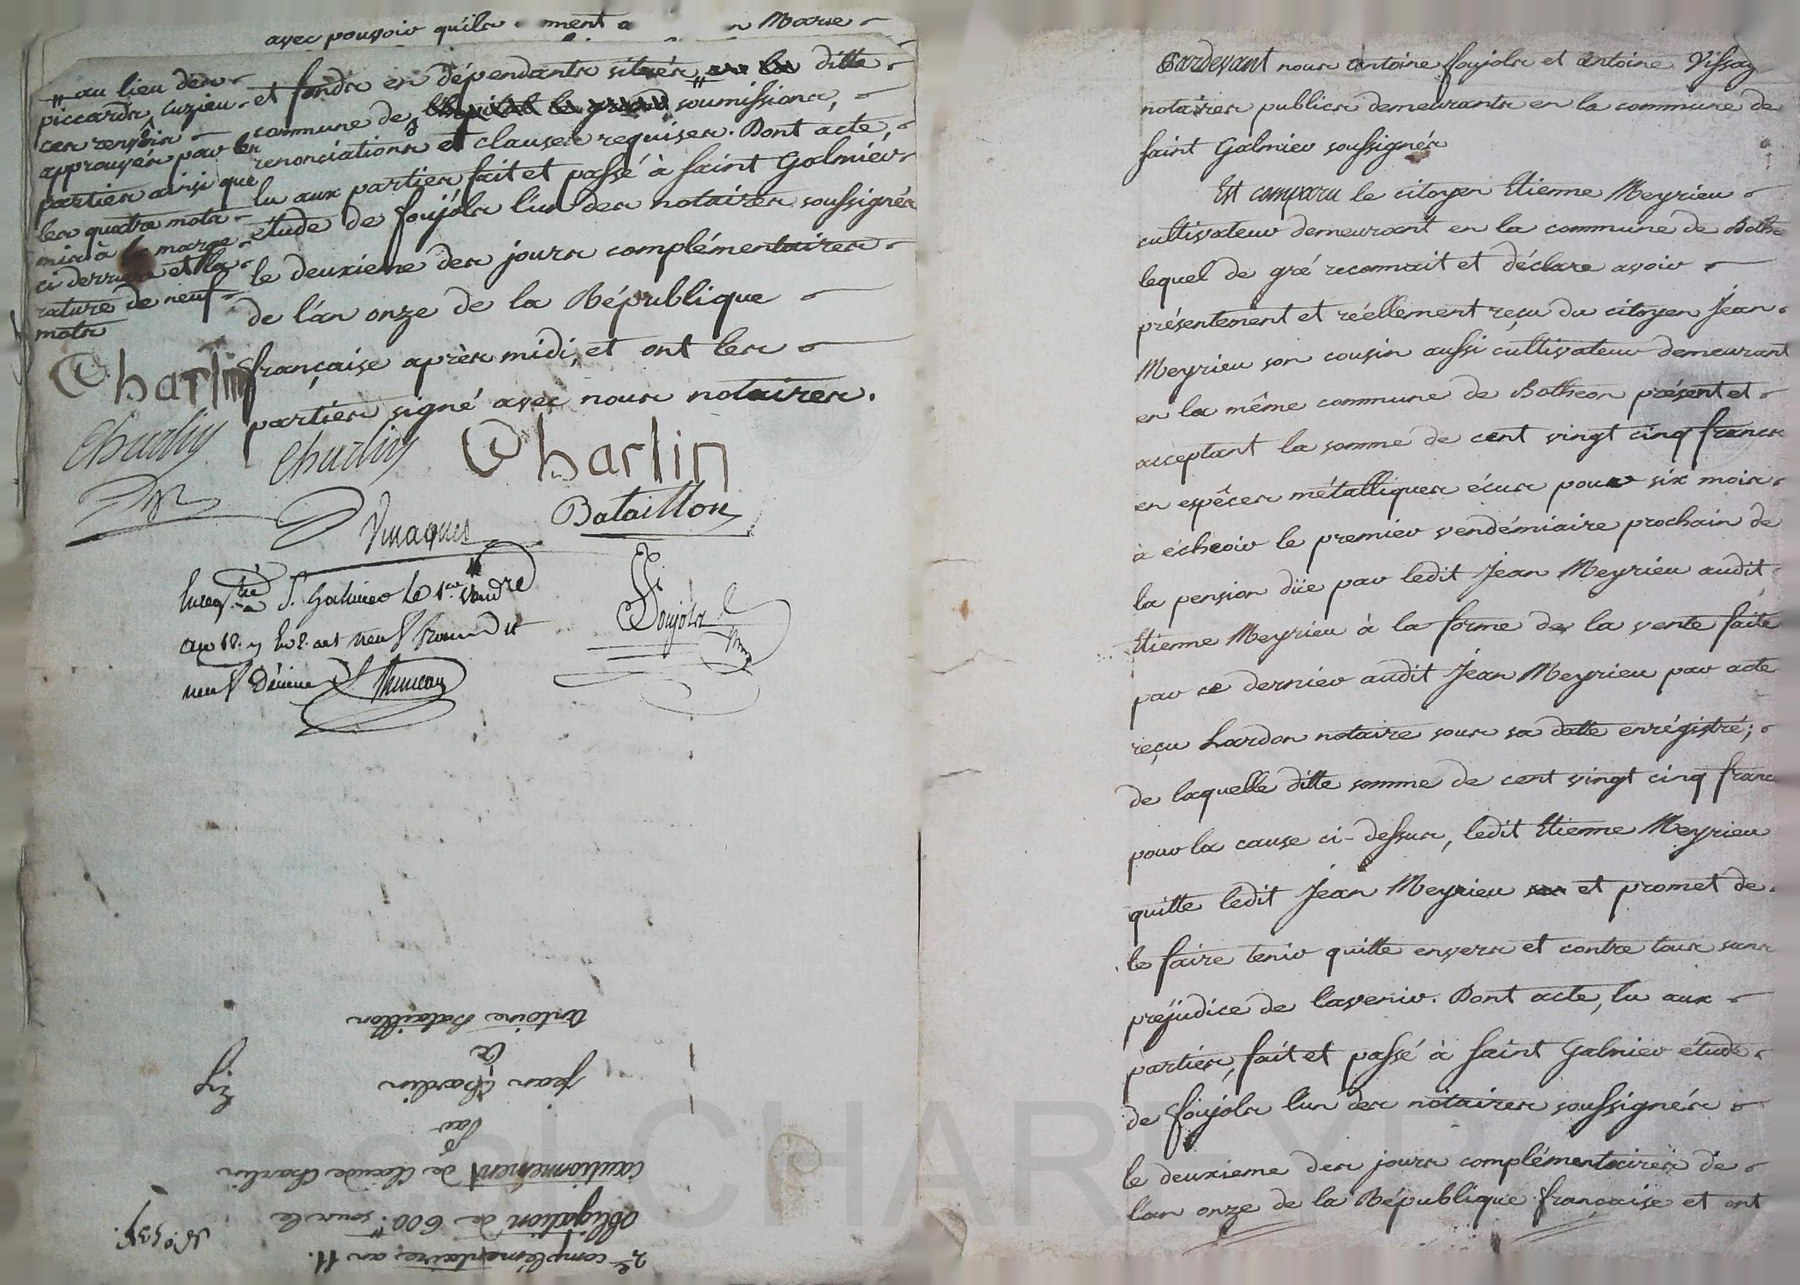 avec pouvoir qu'ils ment a n Marie
et fonds en dépendants situés en la ditte
commune de soumissions,
renonciations et clauses requises. Dont acte,
lu aux parties fait et passé à saint Galmier
étude de foujols l'un des notaires soussignés
le deuxieme des jours complémentaires
de l'an onze de la République
française après midi, et ont les
parties signé avec nous notaires.
" au lieu des
piccards, cuzieu
ces renvois
approuvés par les
parties ainsi que
les quatre mots
mis à la marge
ci derriere et la
rature de neuf
mots
Charlin
Charlin
Charlin
Charlin
Bataillon
foujols
Enregtré à St. Galmier le 1er vendre
an 12.
neuf Décime
2e. complémentaires an 11.
N°. 535.
obligation de 600tt. sous le
cautionnement de Claude Charlin
par
jean Charlin
à
antoine Bataillon
Pardevant nous antoine foujols et antoine Vissag
notaires publics demeurants en la commune de
saint Galmier soussignés
Est comparu le citoyen Etienne Meyrieu
cultivateur demeurant en la commune de Bothe
lequel de gré reconnait et déclare avoir
présentement et réellement reçu du citoyen Jean
Meyrieu son cousin aussi cultivateur demeurant
en la même commune de Botheon présent et
acceptant la somme de cent vingt cinq francs
en espêces métalliques écus pour six mois
à écheoir le premier vendémiaire prochain de
la pension düe par ledit Jean Meyrieu audit
Etienne Meyrieu à la forme de la vente faite
par ce dernier audit Jean Meyrieu par acte
reçu Lardon notaire sous sa datte enrégistré;
de laquelle ditte somme de cent vingt cinq franc
pour la cause ci-dessus, ledit Etienne Meyrieu
quitte ledit Jean Meyrieu et promet de
le faire tenir quitte envers et contre tous sans
préjudice de l'avenir. Dont acte, lu aux
parties, fait et passé à saint Galmier étude
de foujols l'un des notaires soussignés
le deuxieme des jours complémentaires de
l'an onze de la République française et ont